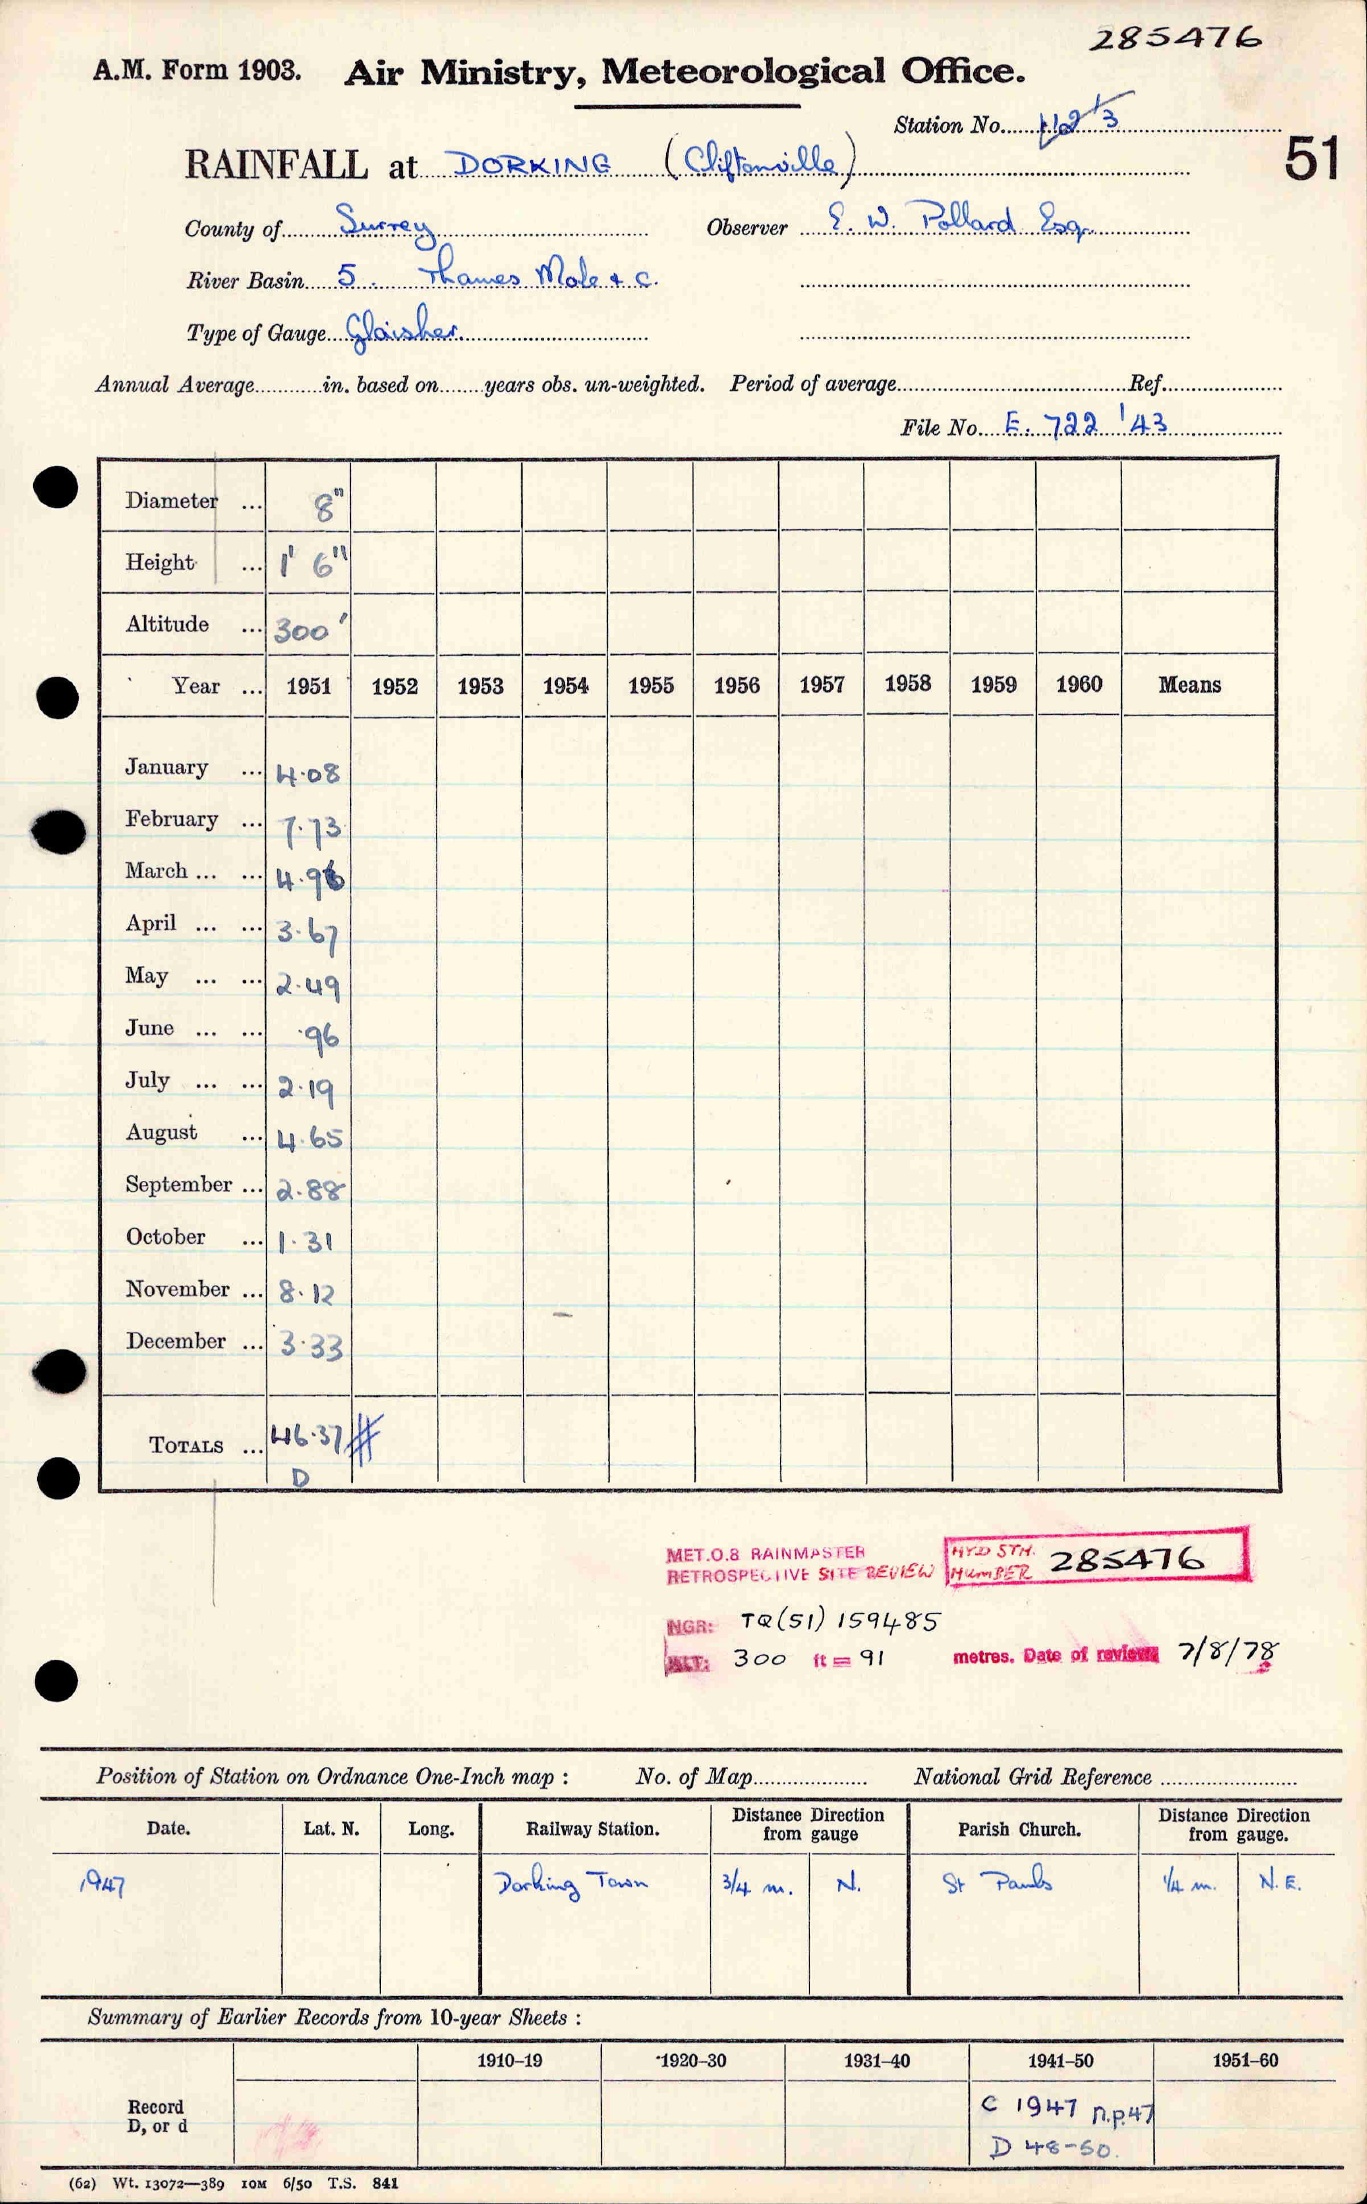 285476
A.M. Form 1903. Air Ministry, Meteorological Office.
Station No. 1/3
51
RAINFALL at DORKING (Cliftonville)
County of Surrey Observer E. W. Pollard Esq.
River Basin 5. Thames Mole & c.
Type of Gauge Glaisher.
Annual Average in. based on years obs. un-weighted. Period of average Ref.
File No. E. 722 '43
Diameter ... 8"
Height ... 1' 6"
Altitude ... 300'
Year ... 1951 1952 1953 1954 1955 1956 1957 1958 1959 1960 Means
January ... 4.08
February ... 7.73
March ... ... 4.96
April ... ... 3.67
May ... ... 2.49
June ... ... .96
July ... ... 2.19
August ... 4.65
September ... 2.88
October ... 1.31
November ... 8.12
December ... 3.33
TOTALS ... 46.37 #
D
MET.O.8 RAINMASTER
RETROSPECTIVE SITE REVIEW
HYD STN.
NUMBER 285476
NGR: TQ(51) 159485
ALT: 300 ft = 91 metres. Date of review 7/8/78
Position of Station on Ordnance One-Inch map : No. of Map National Grid Reference
Date. Lat. N. Long. Railway Station. Distance Direction from gauge Parish Church. Distance Direction from gauge.
1947 Dorking Town 3/4 m. N. St Pauls 1/4 m. N.E.
Summary of Earlier Records from 10-year Sheets :
1910–19 1920–30 1931–40 1941–50 1951–60
Record
D, or d
C 1947 n.p.47
D 48-50.
(62) Wt. 13072—389 10M 6/50 T.S. 841